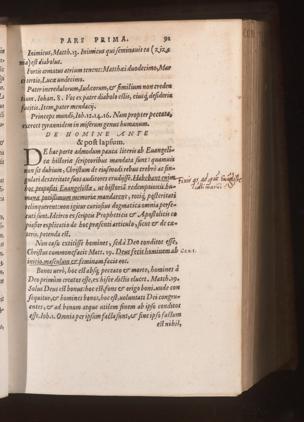 PARS PRIMA. 92
Inimicus, Matth. 13. Inimicus qui seminauit ea (zizania)
est diabolus.
Fortis armatus atrium tenens: Matthæi duodecimo, Mar
ci tertio, Lucæ undecimo.
Pater incredulorum, Iudæorum, & similium non creden
tium. Iohan. 8. Vos ex patre diabolo estis, eiusq; desideria
facitis. Item, pater mendacij.
Princeps mundi, Ioh. 12. 14. 16. Nam propter peccata,
exercet tyrannidem in miserum genus humanum.
DE HOMINE ANTE
& post lapsum.
DE hac parte admodum pauca literis ab Euangeli-
cæ historiæ scriptoribus mandata sunt: quamuis
non sit dubium, Christum de eiusmodi rebus crebrò ac sin-
gulari dexteritate suos auditores erudisse. Habebant enim
hoc Euangelistæ, ut historiã redemptionis hu-
manæ potissimum memoriæ mandarent, reliq;
delinquerent
tati sunt. Idcirco ex scriptis Propheticis & Apostolicis co
piosior explicatio de hoc præsenti articulo, sicut & de cæ-
teris, petenda est.
Non casu extitisse homines, sed à Deo conditos esse,
Christus commonefacit Matt. 19. Deus fecit hominem ab Gen. 1.
initio, masculum & feminam fecit eos.
Bonos uerò, hoc est absq; peccato & morte, homines à
Deo primùm creatos esse, ex hisce dictis elucet. Matth. 19.
Solus Deus est bonus: hoc est fons & origo boni. unde con
sequitur, & homines bonos, hoc est, uoluntati Dei congru-
entes, & ad bonum atque utilem finem ab ipso conditos
esse. Ioh. 1. Omnia per ipsum facta sunt, & sine ipso factum
est nihil,